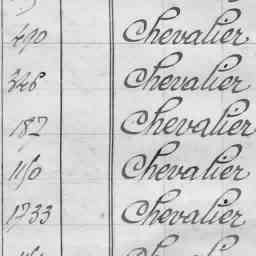 490 Chevalier
346 Chevalier
187 Chevalier
1150 Chevalier
1733 Chevalier
Chevalier